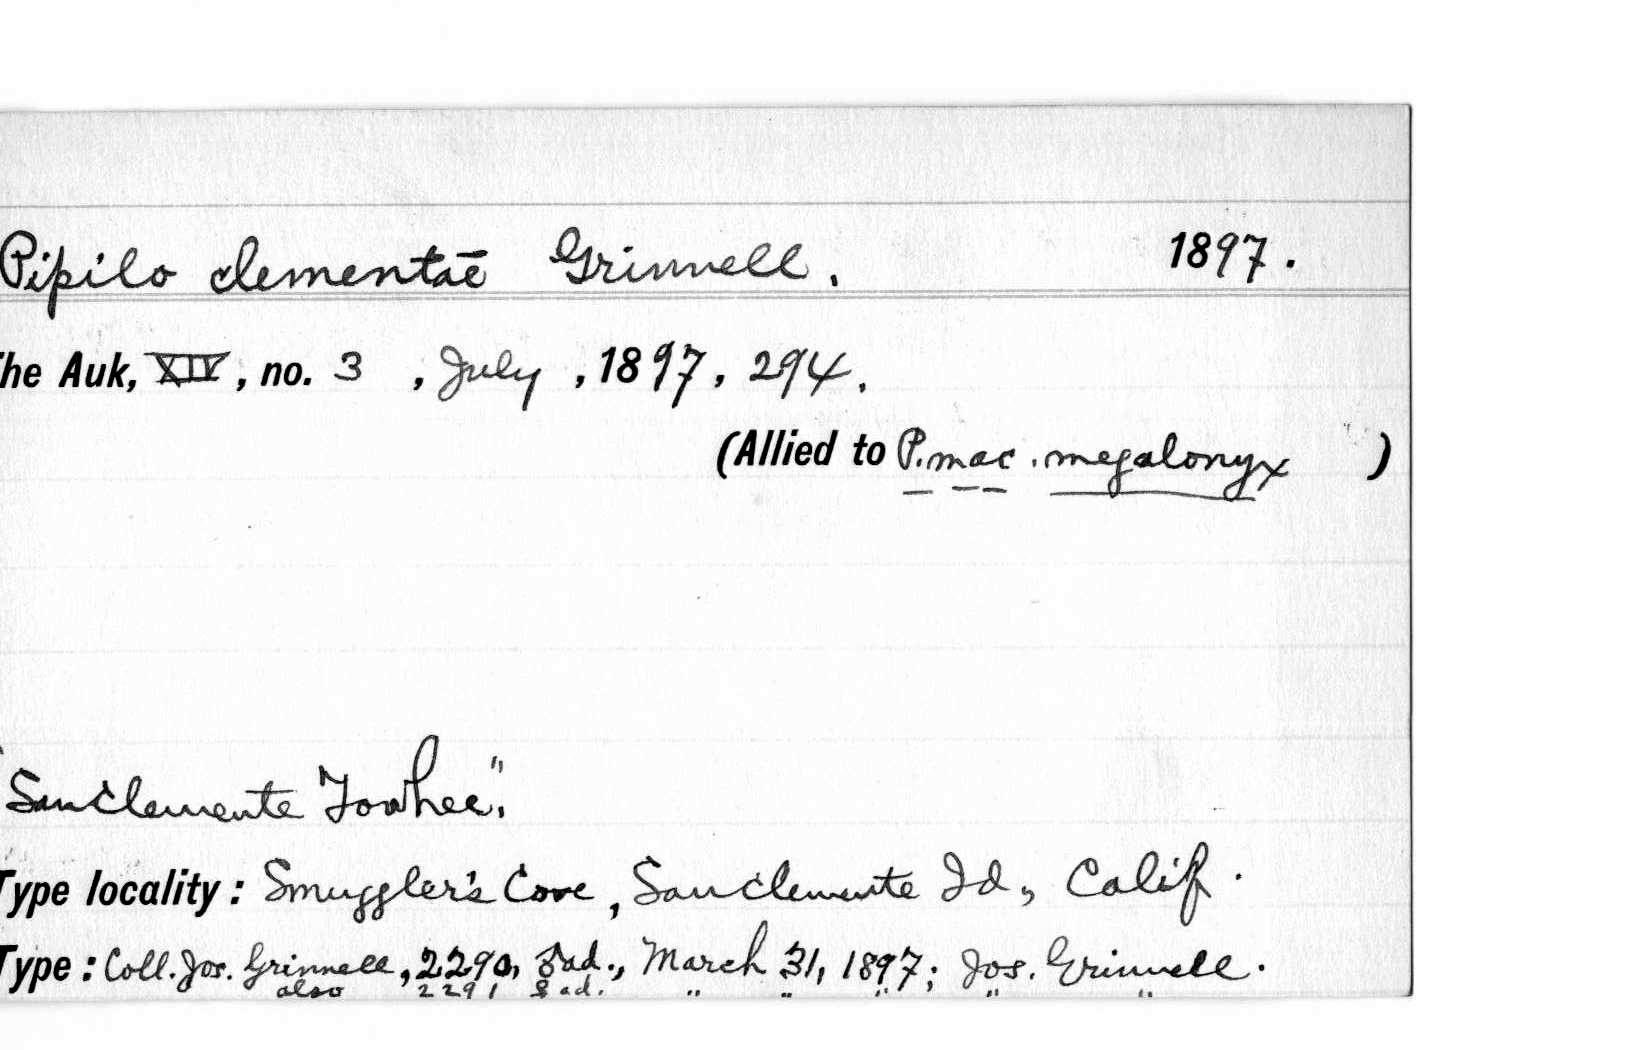 Pipilo clementae Grinnell. 1897.
The Auk, XIV, no. 3, July, 1897, 294.
(Allied to P. mac. megalonyx)
"San Clemente Towhee".
Type locality: Smuggler's Cove, San Clemente Id., Calif.
Type: Coll. Jos. Grinnell, 2290, ♂ ad., March 31, 1897; Jos. Grinnell.
also 2291 ♀ ad. " " " " "